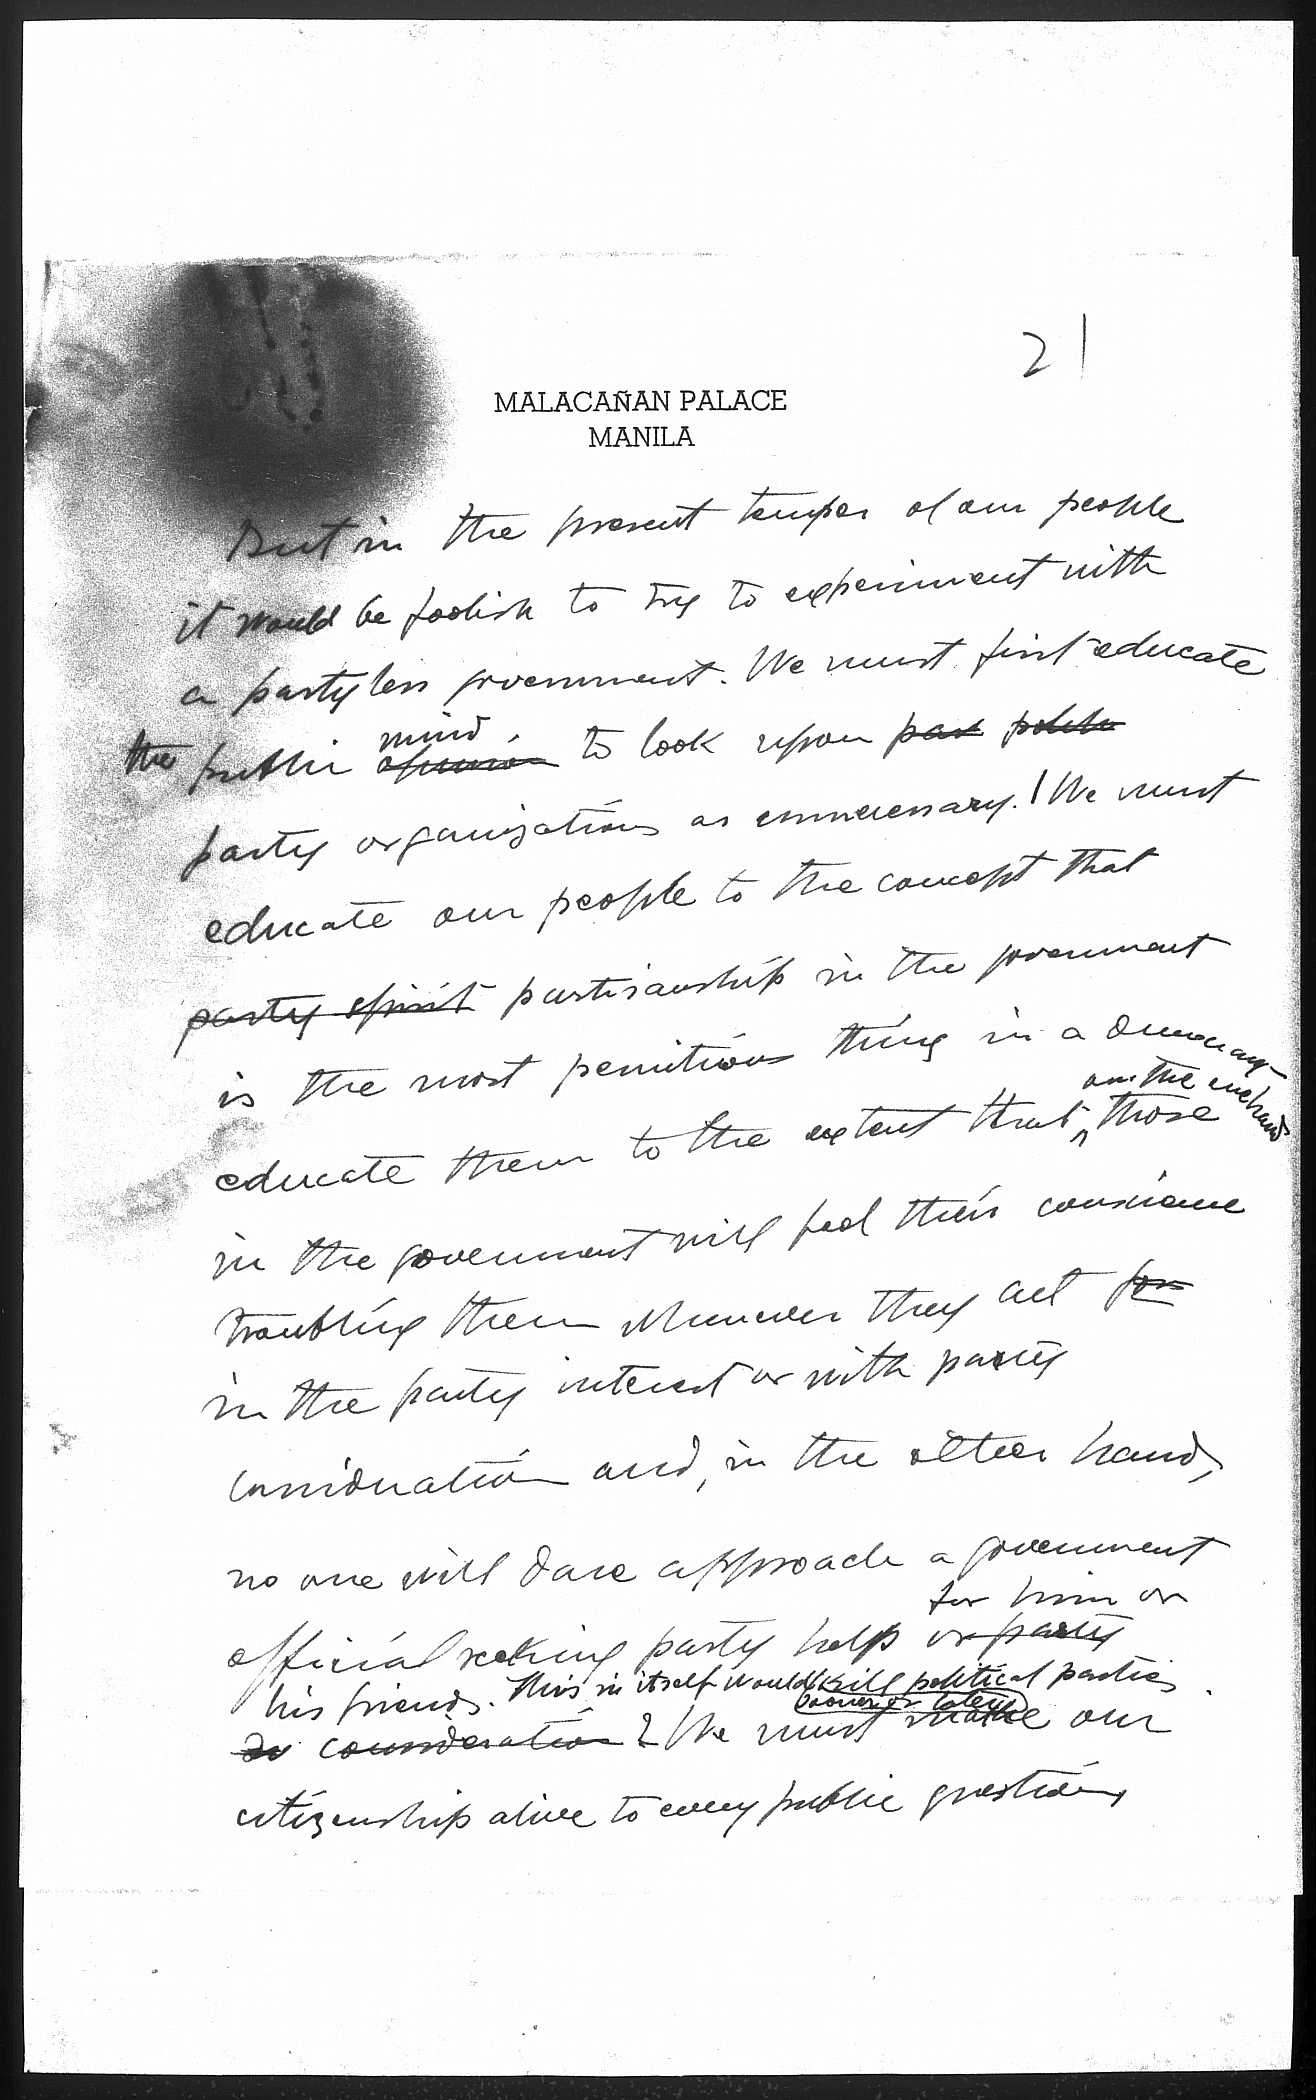 21
MALACAÑAN PALACE
MANILA
But in the present temper of our people
it would be foolish to try to experiment with
a partyless government. We must first educate
mind
the public opinion to look upon par
party organizations as unnecessary. We must
educate our people to the concept that
party spirit partisanship in the government
is the most pernitious thing in a democracy
on the one hand
educate them to the extent that ^ those
in the government will feel their conscience
troubling them whenever they act for
in the party interest or with party
consideration and, in the other hand,
no one will dare approach a government
for him or
official seeking party help or party
his friends. This in itself would kill political parties
sooner or later
consideration We must make our
citizenship alive to every public question,